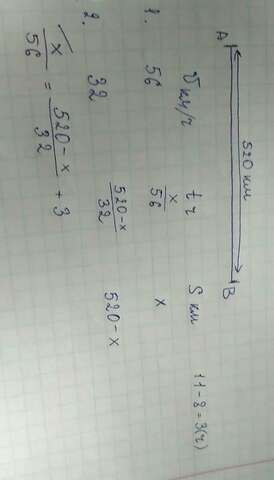 A 520 км B
V км/ч t ч S км 11-8=3(ч)
1. 56 x/56 x
2. 32 520-x/32 520-x
x/56 = 520-x/32 + 3